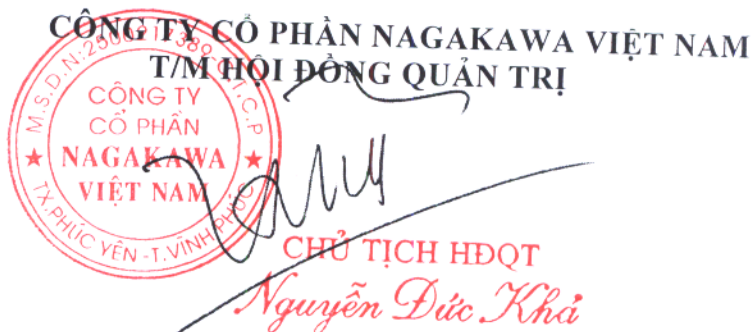 CÔNG TY CỔ PHẦN NAGAKAWA VIỆT NAM
T/M HỘI ĐỒNG QUẢN TRỊ
M.S.D.N:2500217389
C.T.C.P
CÔNG TY
CỔ PHẦN
NAGAKAWA
VIỆT NAM
TX.PHÚC YÊN-T.VĨNH PHÚC
CHỦ TỊCH HĐQT
Nguyễn Đức Khả